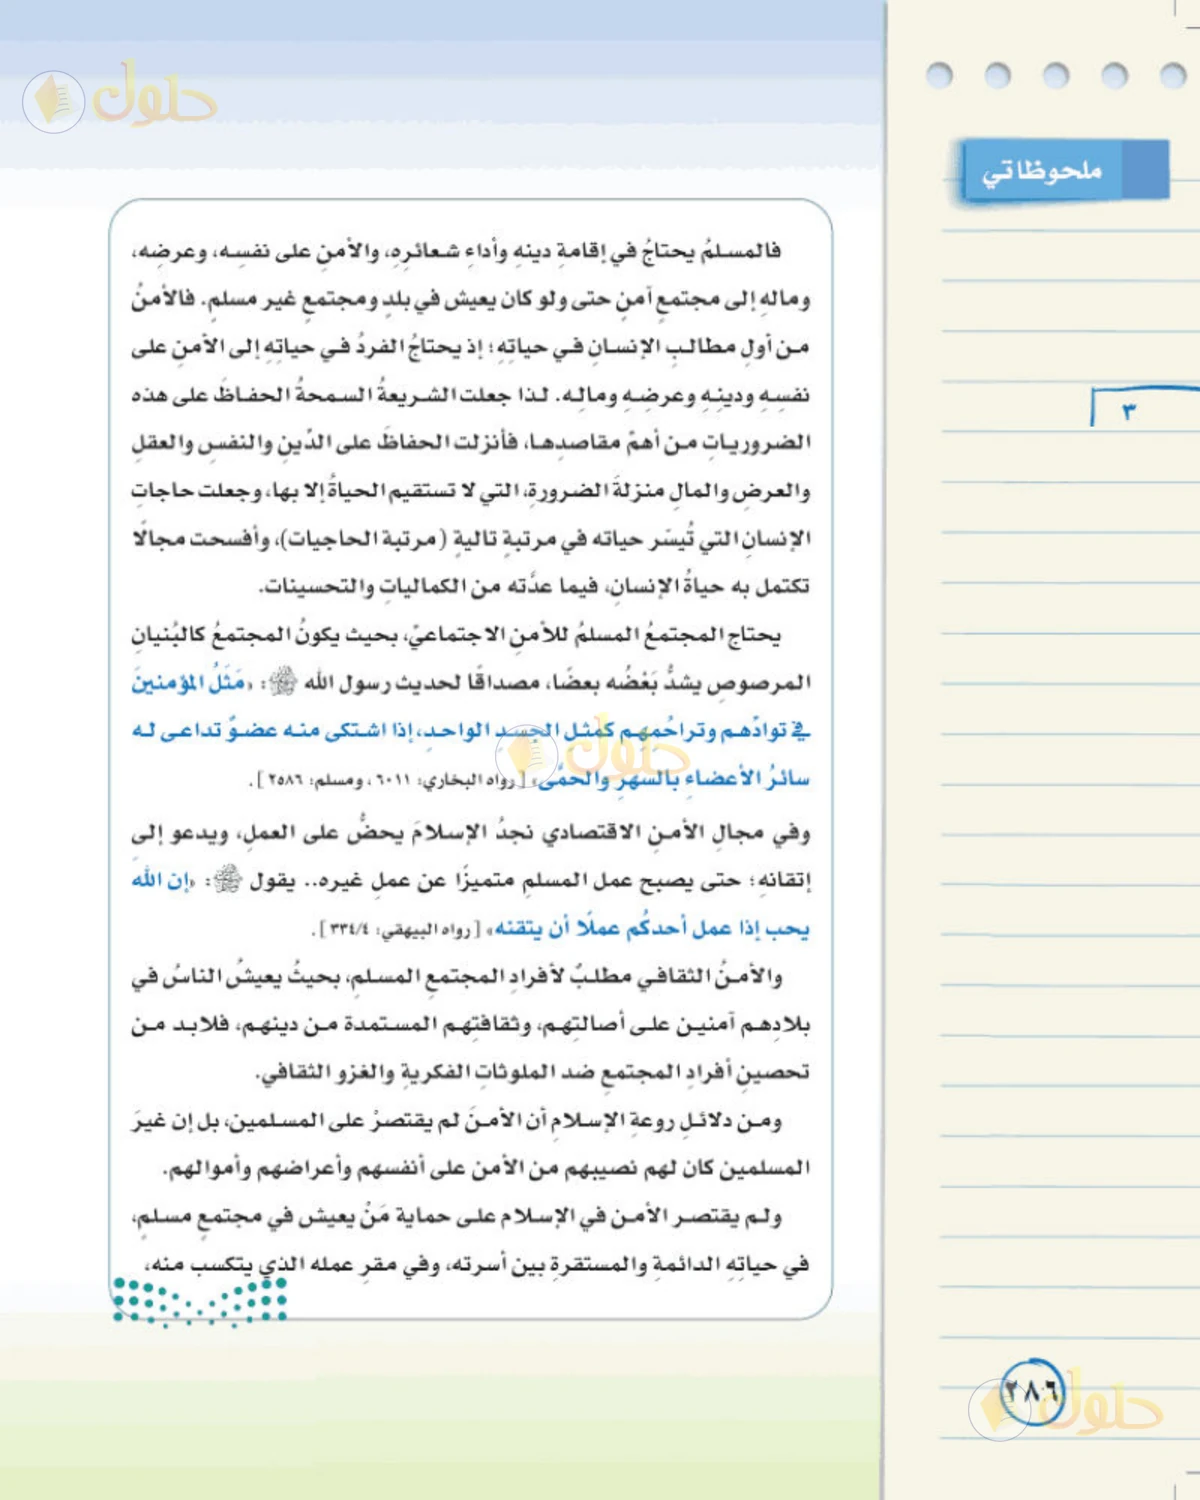 حلول
ملحوظاتي
٣
فالمسلمُ يحتاجُ في إقامةِ دينهِ وأداءِ شعائرِهِ، والأمنِ على نفسِه، وعرضِه،
ومالهِ إلى مجتمعٍ آمنٍ حتى ولو كان يعيش في بلدٍ ومجتمعٍ غير مسلمٍ. فالأمنُ
من أولِ مطالبِ الإنسانِ في حياتهِ؛ إذ يحتاجُ الفردُ في حياتِهِ إلى الأمنِ على
نفسِهِ ودينِهِ وعرضِهِ ومالِه. لذا جعلت الشريعةُ السمحةُ الحفاظَ على هذه
الضرورياتِ من أهمِّ مقاصدِها، فأنزلت الحفاظَ على الدِّينِ والنفسِ والعقلِ
والعرضِ والمالِ منزلةَ الضرورةِ، التي لا تستقيم الحياةُ إلا بها، وجعلت حاجاتِ
الإنسانِ التي تُيسّر حياته في مرتبةٍ تاليةٍ (مرتبة الحاجيات)، وأفسحت مجالًا
تكتمل به حياةُ الإنسانِ، فيما عدَّته من الكمالياتِ والتحسينات.
يحتاج المجتمعُ المسلمُ للأمنِ الاجتماعيِّ، بحيث يكونُ المجتمعُ كالبُنيانِ
المرصوصِ يشدُّ بَعْضُه بعضًا، مصداقًا لحديث رسول الله ﷺ: «مَثَلُ المؤمنينَ
في توادِّهم وتراحُمِهِم كمثلِ الجسدِ الواحدِ، إذا اشتكى منه عضوٌ تداعى له
سائرُ الأعضاءِ بالسهرِ والحمَّى» [رواه البخاري: ٦٠١١، ومسلم: ٢٥٨٦].
وفي مجالِ الأمنِ الاقتصادي نجدُ الإسلامَ يحضُّ على العملِ، ويدعو إلى
إتقانهِ؛ حتى يصبح عمل المسلمِ متميزًا عن عملِ غيره.. يقول ﷺ: «إن الله
يحب إذا عمل أحدكُم عملًا أن يتقنه» [رواه البيهقي: ٣٣٤/٤].
والأمنُ الثقافي مطلبٌ لأفرادِ المجتمعِ المسلمِ، بحيثُ يعيشُ الناسُ في
بلادِهم آمنين على أصالتِهم، وثقافتِهم المستمدة من دينهم، فلابد من
تحصينِ أفرادِ المجتمعِ ضد الملوثاتِ الفكريةِ والغزو الثقافي.
ومن دلائلِ روعةِ الإسلامِ أن الأمنَ لم يقتصرْ على المسلمين، بل إن غيرَ
المسلمين كان لهم نصيبهم من الأمن على أنفسهم وأعراضهم وأموالهم.
ولم يقتصر الأمن في الإسلام على حماية مَنْ يعيش في مجتمعٍ مسلمٍ،
في حياتِهِ الدائمةِ والمستقرةِ بين أسرته، وفي مقرِ عمله الذي يتكسب منه،
حلول
٢٨٦
حلول